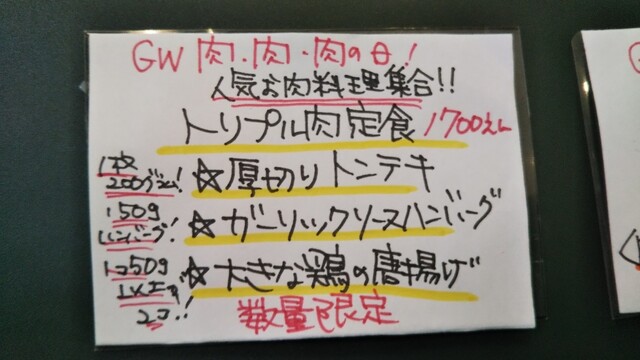 GW 肉・肉・肉の日!
人気お肉料理集合!!
トリプル肉定食 1700えん
1枚
200グラム!
☆厚切りトンテキ
150g
ハンバーグ!
☆ガーリックソースハンバーグ
1コ50g
2コ!!
☆大きな鶏の唐揚げ
数量限定